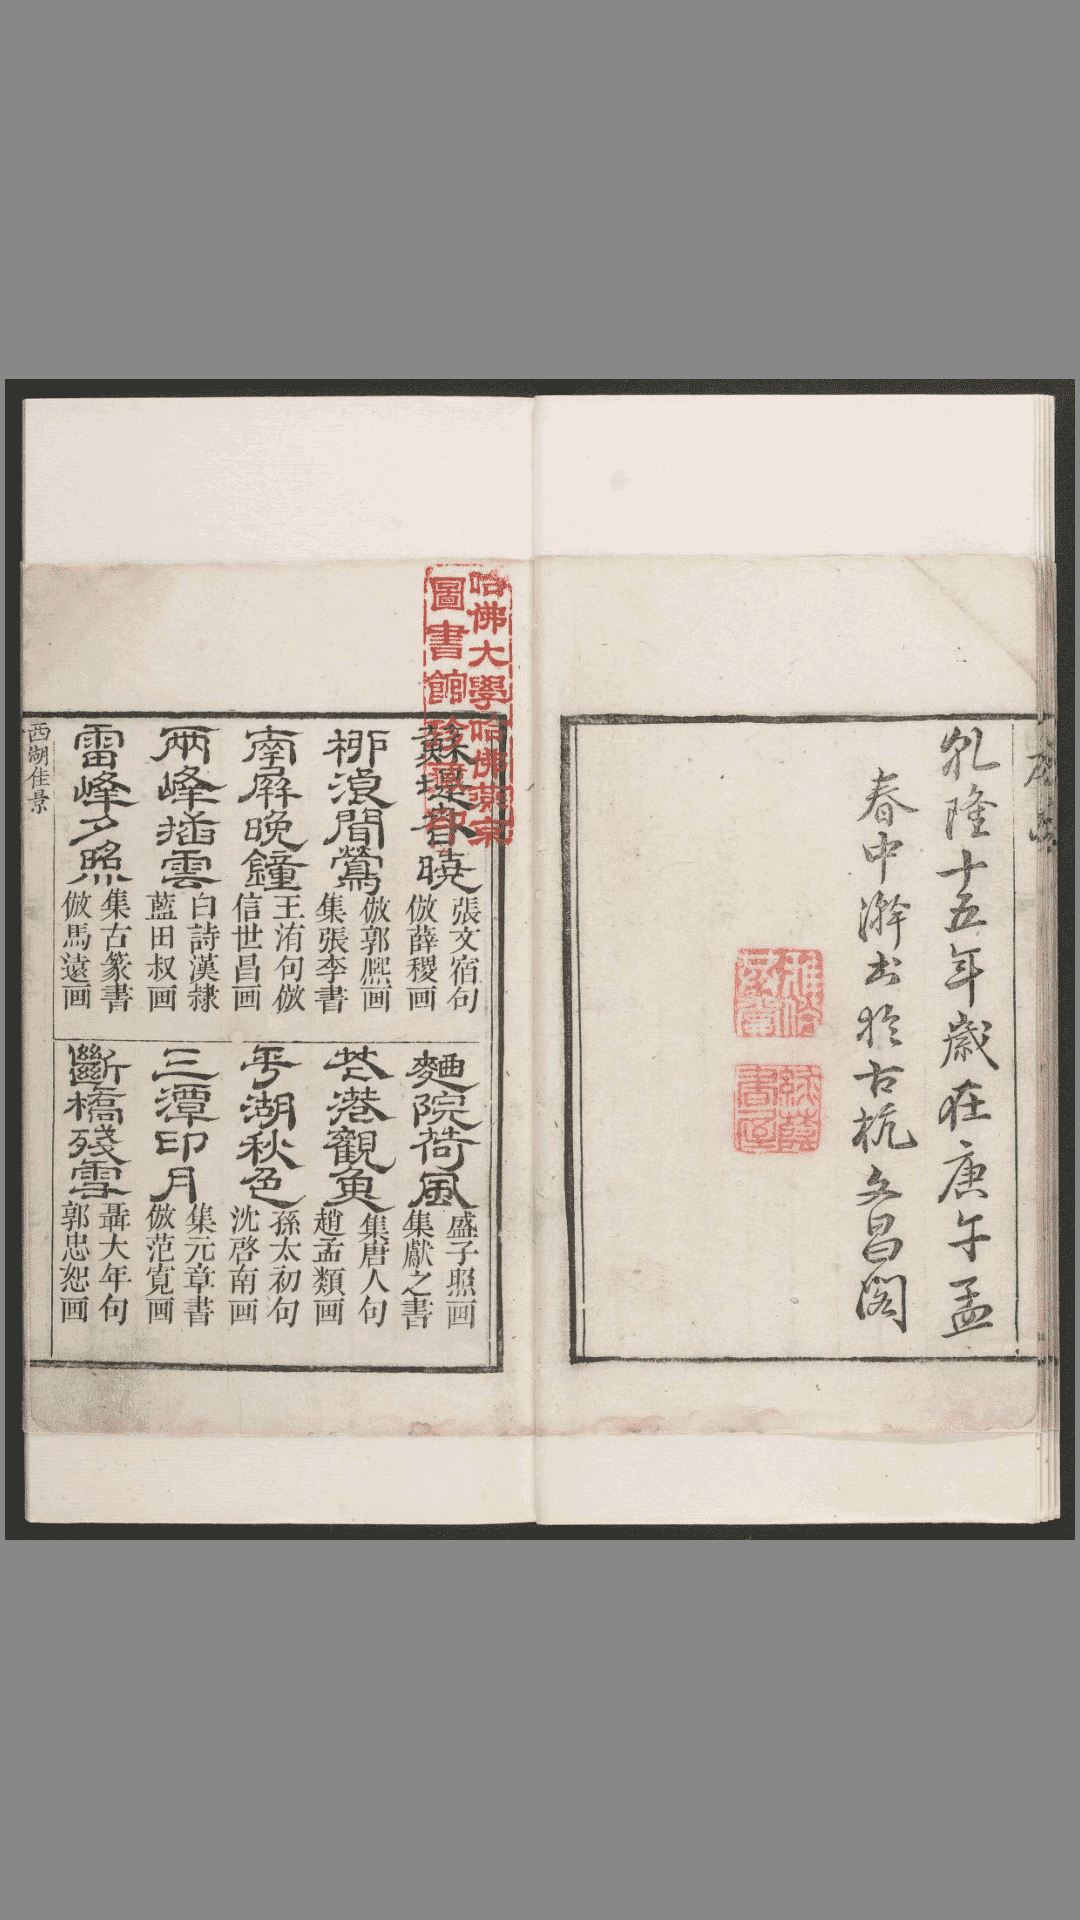 乹隆十五年歲在庚午孟
春中澣书於古杭文昌阁
哈佛大學哈佛燕京
圖書館珍藏印
蘇堤春曉
張文宿句
倣薛稷画
桺浪聞鶯
倣郭熈画
集張李書
南屏晚鐘
王洧句倣
信世昌画
兩峰插雲
白詩漢隸
藍田叔画
雷峰夕照
集古篆書
倣馬遠画
麯院荷風
盛子照画
集獻之書
花港觀魚
集唐人句
趙孟頪画
平湖秋色
孫太初句
沈啓南画
三潭印月
集元章書
倣范寬画
斷橋殘雪
聶大年句
郭忠恕画
西湖佳景